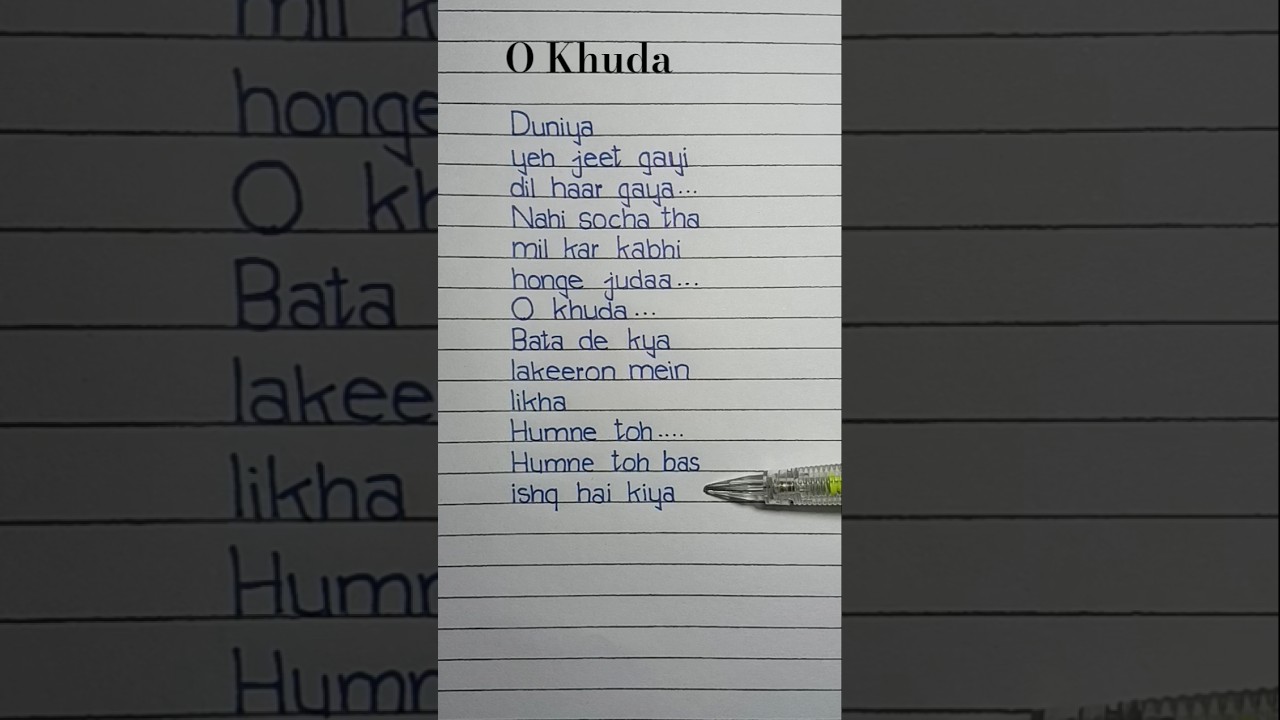 O Khuda
Duniya
yeh jeet gayi
dil haar gaya...
Nahi socha tha
mil kar kabhi
honge judaa...
O khuda...
Bata de kya
lakeeron mein
likha
Humne toh....
Humne toh bas
ishq hai kiya